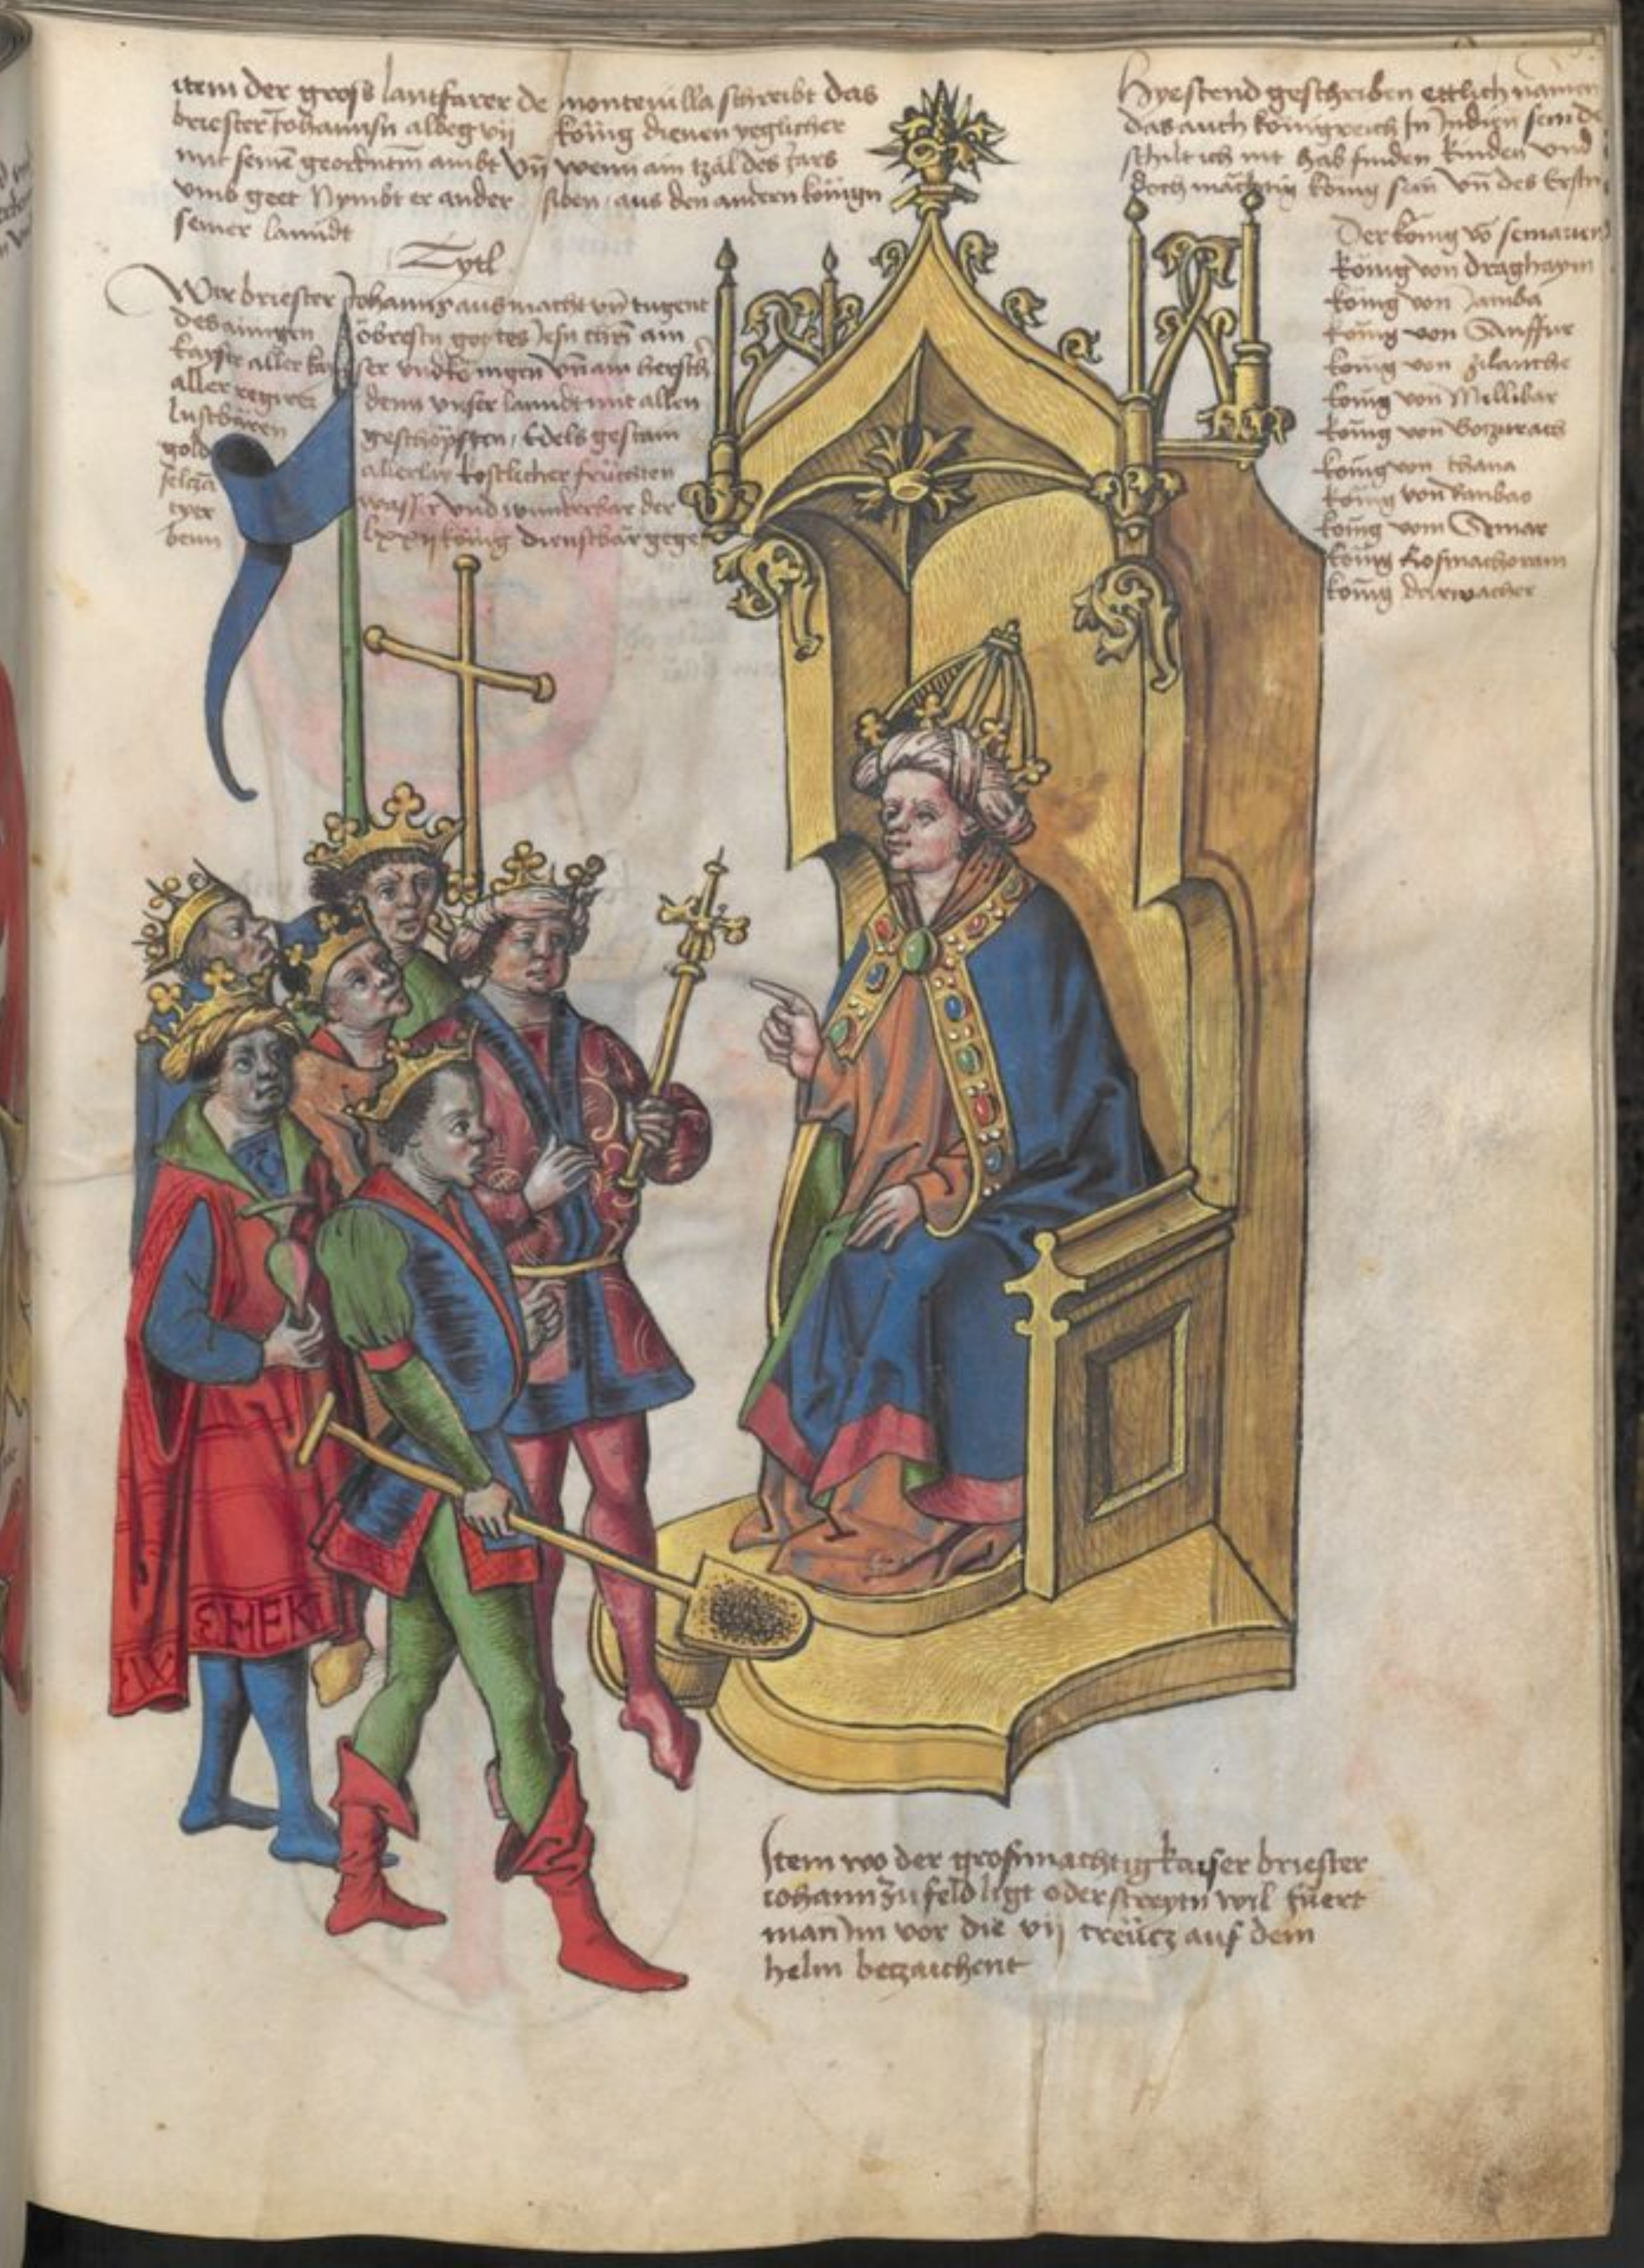 item der gross lantfarer de montevilla schreibt das
briester Johannsn albeg vij könig dienen yeglicher
mit seinē geordntm ambt Vn̄ wenn ain tzal des Jars
vmb geet Nymbt er ander siben aus den andern könign
seiner lanndt
Tytl
Wir briester Johanns aus macht vn̄ tugent
des ainigen öbrestn gottes Jesu chrī ain
kayser aller kayser vnd köningen vn̄ ain hersch
aller regirer denn vnser lanndt mit allen
lustbären geschöpften / Edels gestain
gold allerlay kostlicher früchten
selczā wasser vnd wunderbar der
tyer lxxij könig dienstbar gegeb
benn
Hye stend geschriben ettlich namen
das auch königreich In Jndien sein
schilt ich nit hab finden kinden vnd
doch mächtig könig sein vn̄ des Erstn
Der könig vō semarien
könig von draghaym
könig von Jamba
könig von Sauffur
könig von silantche
könig von Millibar
könig von Goczurath
könig von thana
könig von kanbao
könig vom Semar
könig kosmachoram
könig delrwacher
EHEK
Item wo der grosmachtig kaiser briester
iohann zu feld ligt oder streytn wil fuert
man Im vor die vij creücz auf dem
helm beczaichent